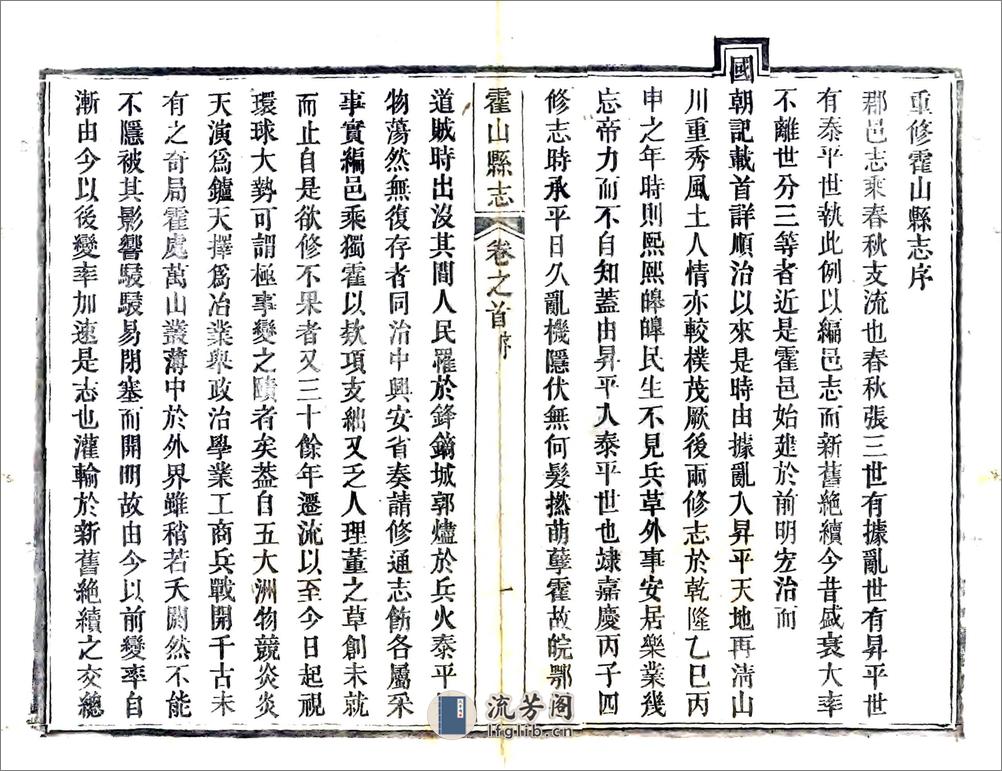 重修霍山縣志序
郡邑志乘春秋支流也春秋張三世有據亂世有昇平世
有泰平世執此例以編邑志而新舊絶續今昔盛衰大率
不離世分三等者近是霍邑始建於前明宏治而
國朝記載首詳順治以來是時由據亂入昇平天地再淸山
川重秀風土人情亦較樸茂厥後兩修志於乾隆乙巳丙
申之年時則熙熙皞皞民生不見兵革外事安居樂業幾
忘帝力而不自知蓋由昇平入泰平世也逮嘉慶丙子四
修志時承平日久亂機隱伏無何髮撚萌孽霍故皖鄂
霍山縣志 卷之首 序 一
道賊時出沒其間人民罹於鋒鏑城郭燼於兵火泰平
物蕩然無復存者同治中興安省奏請修通志飭各屬采
事實編邑乘獨霍以欵項支絀又乏人理董之草創未就
而止自是欲修不果者又三十餘年遷流以至今日起視
環球大勢可謂極事變之賾者矣葢自五大洲物競炎炎
天演爲鑪天擇爲冶業與政治學業工商兵戰開千古未
有之奇局霍處萬山叢薄中於外界雖稍若夭閼然不能
不隱被其影響駸駸易閉塞而開明故由今以前變率自
漸由今以後變率加速是志也灌輸於新舊絶續之交總
流芳阁
lfglib.cn